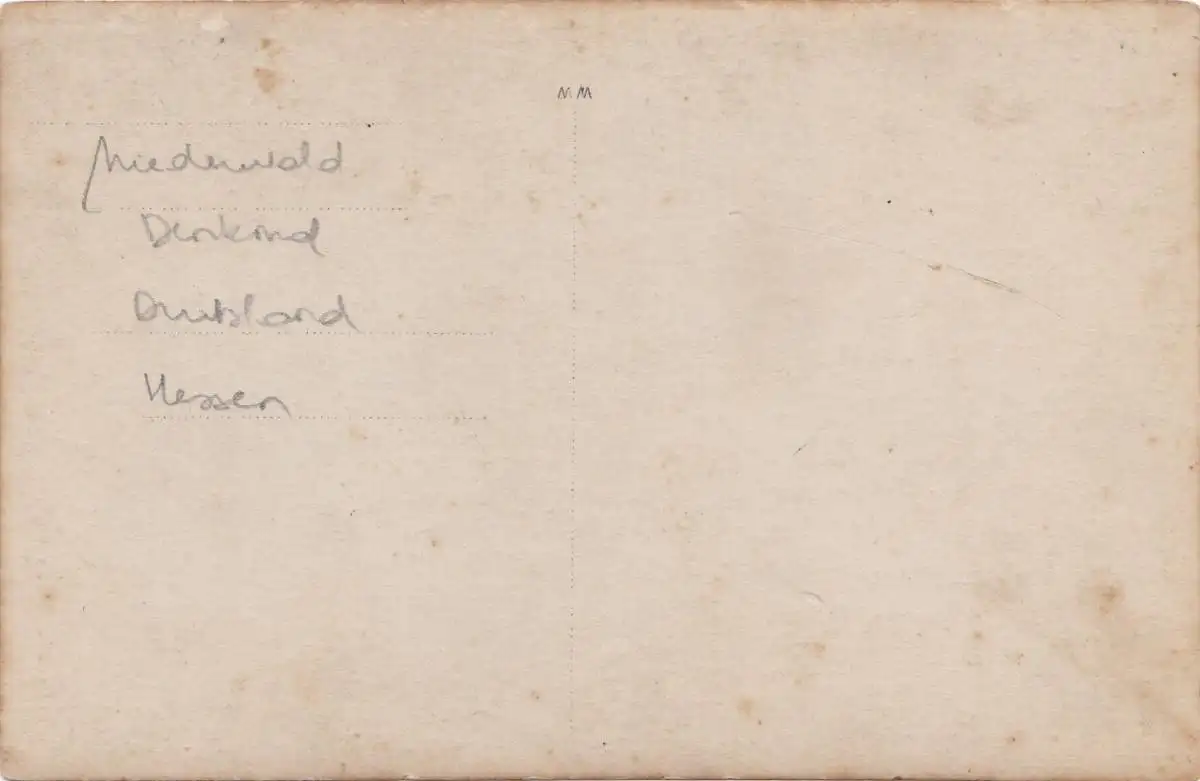 NM
Niederwald
Denkmal
Duitsland
Hessen